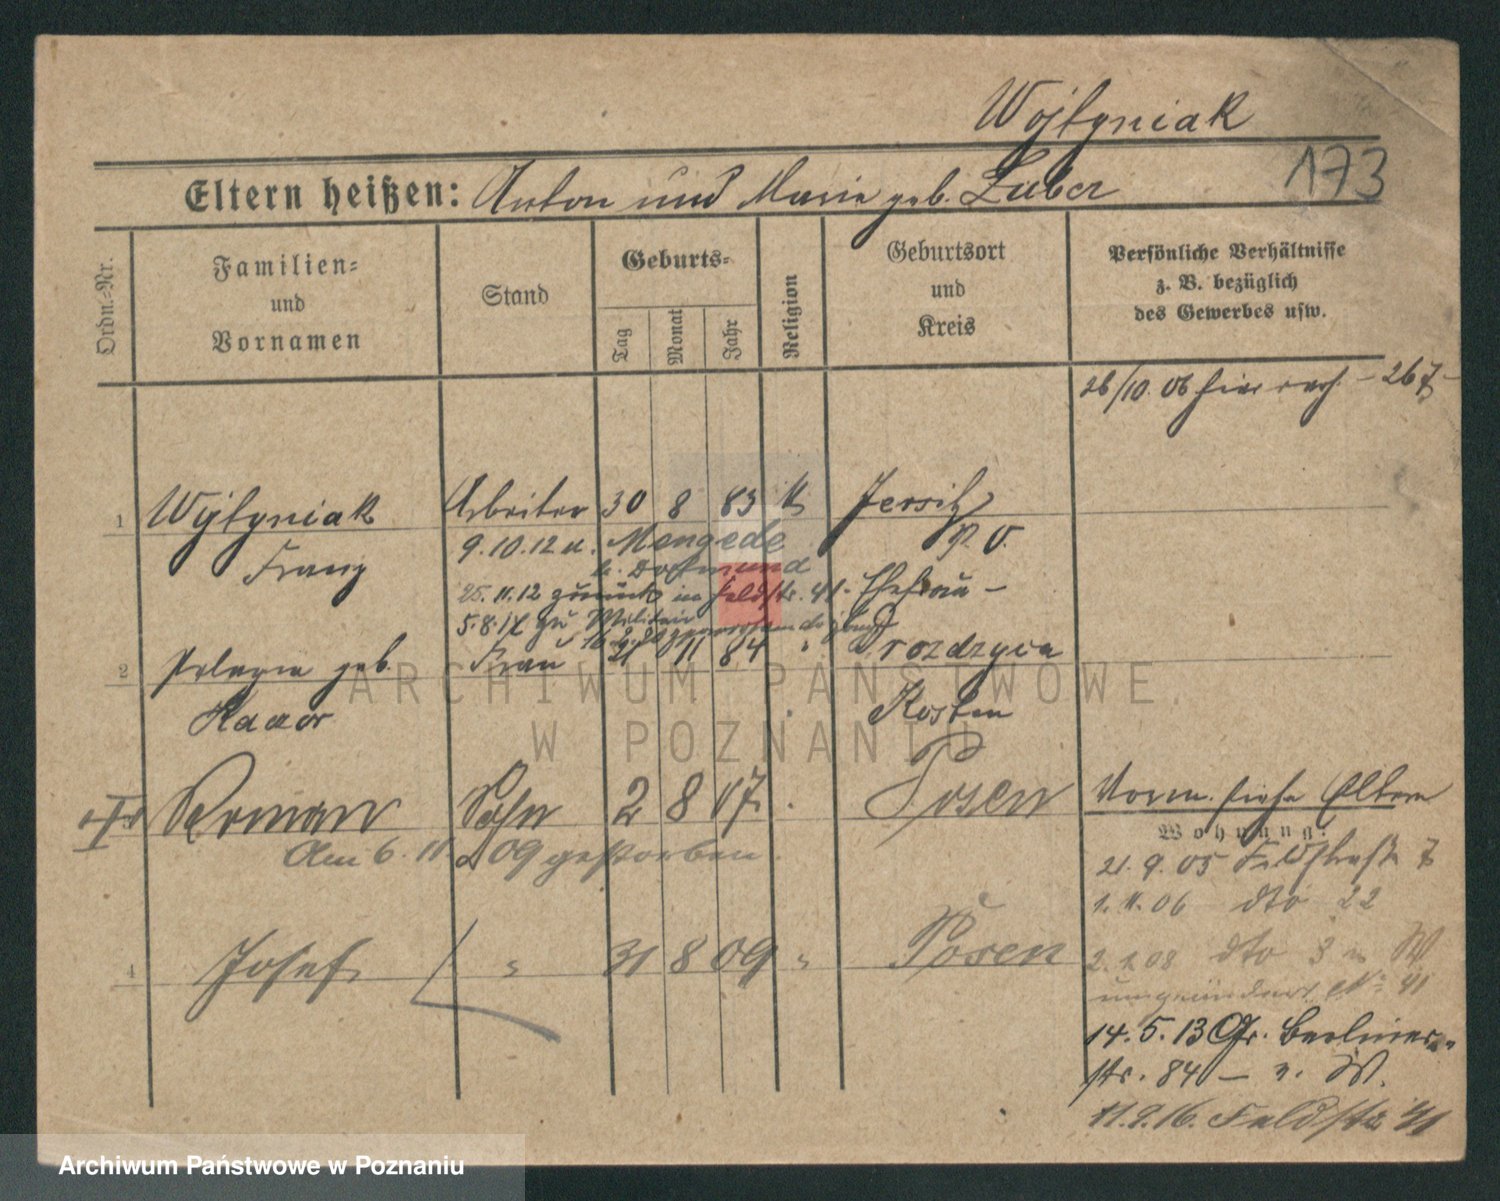 Wojtyniak
173
Eltern heißen: Anton und Marie geb. Zuber
Ordn.-Nr.
Familien-
und
Vornamen
Stand
Geburts-
Tag
Monat
Jahr
Religion
Geburtsort
und
Kreis
Persönliche Verhältnisse
z. B. bezüglich
des Gewerbes usw.
26/10. 06 hier
1 Wojtyniak Arbeiter 30 8 83 k Jersitz
Franz P. O.
9.10.12 u. Mengede
b. Dortmund
25.11.12 zurück in Feldstr. 41 - Ehefrau -
zu Militair
2 geb. Frau 21 11 84 " Drozdzyca
Kosten
Roman Sohn 2 8 07 Posen
Am 6. 11. 09 gestorben
Vorm. siehe Eltern
Wohnung:
21. 9. 05 Feldstraße 7
1. 11. 06 dto 22
4 Josef " 31 8 09 " Posen
2. 1. 08 dto 3 W
umgeändert No 41
14. 5. 13 Gr. Berliner-
str. 84 - W.
16. Feldstr 41
ARCHIWUM PAŃSTWOWE
W POZNANIU
Archiwum Państwowe w Poznaniu